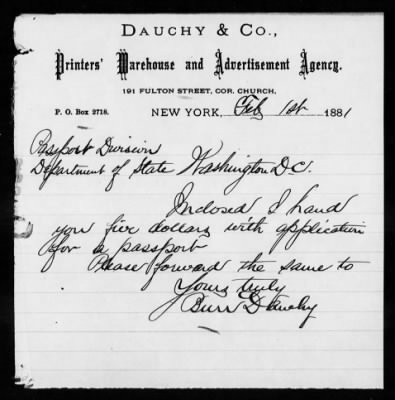 DAUCHY & CO.,
Printers' Warehouse and Advertisement Agency.
191 FULTON STREET, COR. CHURCH,
P. O. Box 2718. NEW YORK, Feb 1st 1881
Passport Division
Department of State Washington D.C.
Inclosed I hand
you five dollars with application
for a passport
Please forward the same to
Yours truly
Burr Dauchy